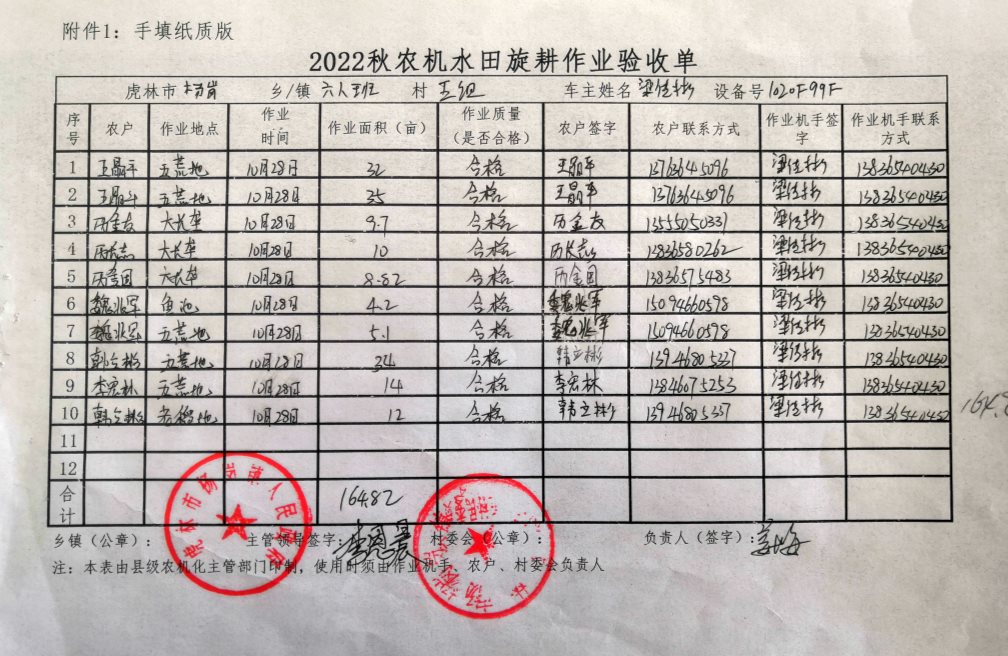 附件1：手填纸质版
2022秋农机水田旋耕作业验收单
虎林市 杨岗 乡/镇 六人班 村 五组 车主姓名 梁佳彬 设备号1020F99F
序号 农户 作业地点 作业时间 作业面积（亩） 作业质量（是否合格） 农户签字 农户联系方式 作业机手签字 作业机手联系方式
1 王晶平 五荒地 10月28日 32 合格 王晶平 13763645096 梁佳彬 13836540430
2 王晶平 五荒地 10月28日 35 合格 王晶平 13763645096 梁佳彬 13836540430
3 历金友 大长垄 10月28日 9.7 合格 历金友 13555050331 梁佳彬 13836540430
4 历长志 大长垄 10月28日 10 合格 历长志 13836580262 梁佳彬 13836540430
5 历金国 大长垄 10月28日 8.82 合格 历金国 13836575483 梁佳彬 13836540430
6 魏兆军 鱼池 10月28日 4.2 合格 魏兆军 15094660598 梁佳彬 13836540430
7 魏兆军 五荒地 10月28日 5.1 合格 魏兆军 15094660598 梁佳彬 13836540430
8 韩立彬 五荒地 10月28日 34 合格 韩立彬 13946805337 梁佳彬 13836540430
9 李宏林 五荒地 10月28日 14 合格 李宏林 13846075253 梁佳彬 13836540430
10 韩立彬 地 10月28日 12 合格 韩立彬 13946805337 梁佳彬 13836540430
164.8
11
12
合计 164.82
乡镇（公章）： 主管领导签字： 村委会（公章）： 负责人（签字）：
虎林市杨岗镇人民政府
注：本表由县级农机化主管部门印制，使用时须由作业机手、农户、村委会负责人